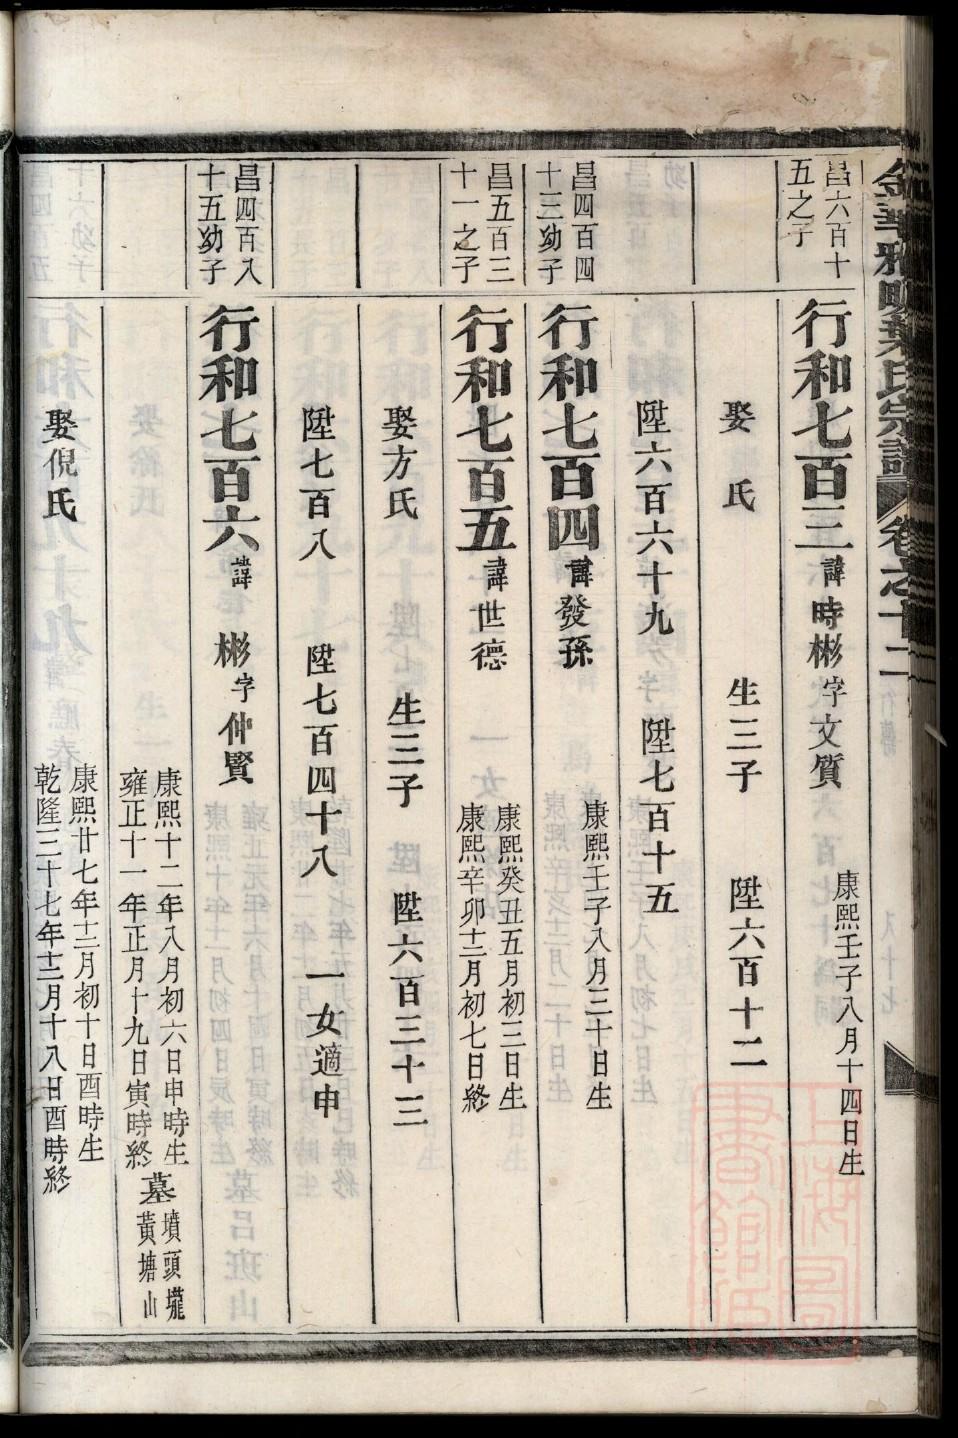 金華雅畈葉氏宗譜 卷之十二
昌六百十
五之子
行和七百三 諱時彬字文質
康熙壬子八月十四日生
娶 氏 生三子 陞六百十二
陞六百六十九 陞七百十五
昌四百四
十三幼子
行和七百四 諱發孫
康熙壬子八月三十日生
昌五百三
十一之子
行和七百五 諱世德
康熙癸丑五月初三日生
康熙辛卯十二月初七日終
娶方氏 生三子 陞六百三十三
陞七百八 陞七百四十八 一女適申
昌四百八
十五幼子
行和七百六 諱 彬字仲賢
康熙十二年八月初六日申時生
雍正十一年正月十九日寅時終
墓 墳頭壠
黃塘山
娶倪氏
康熙廿七年十二月初十日酉時生
乾隆三十七年十二月十八日酉時終
上海圖
書館藏